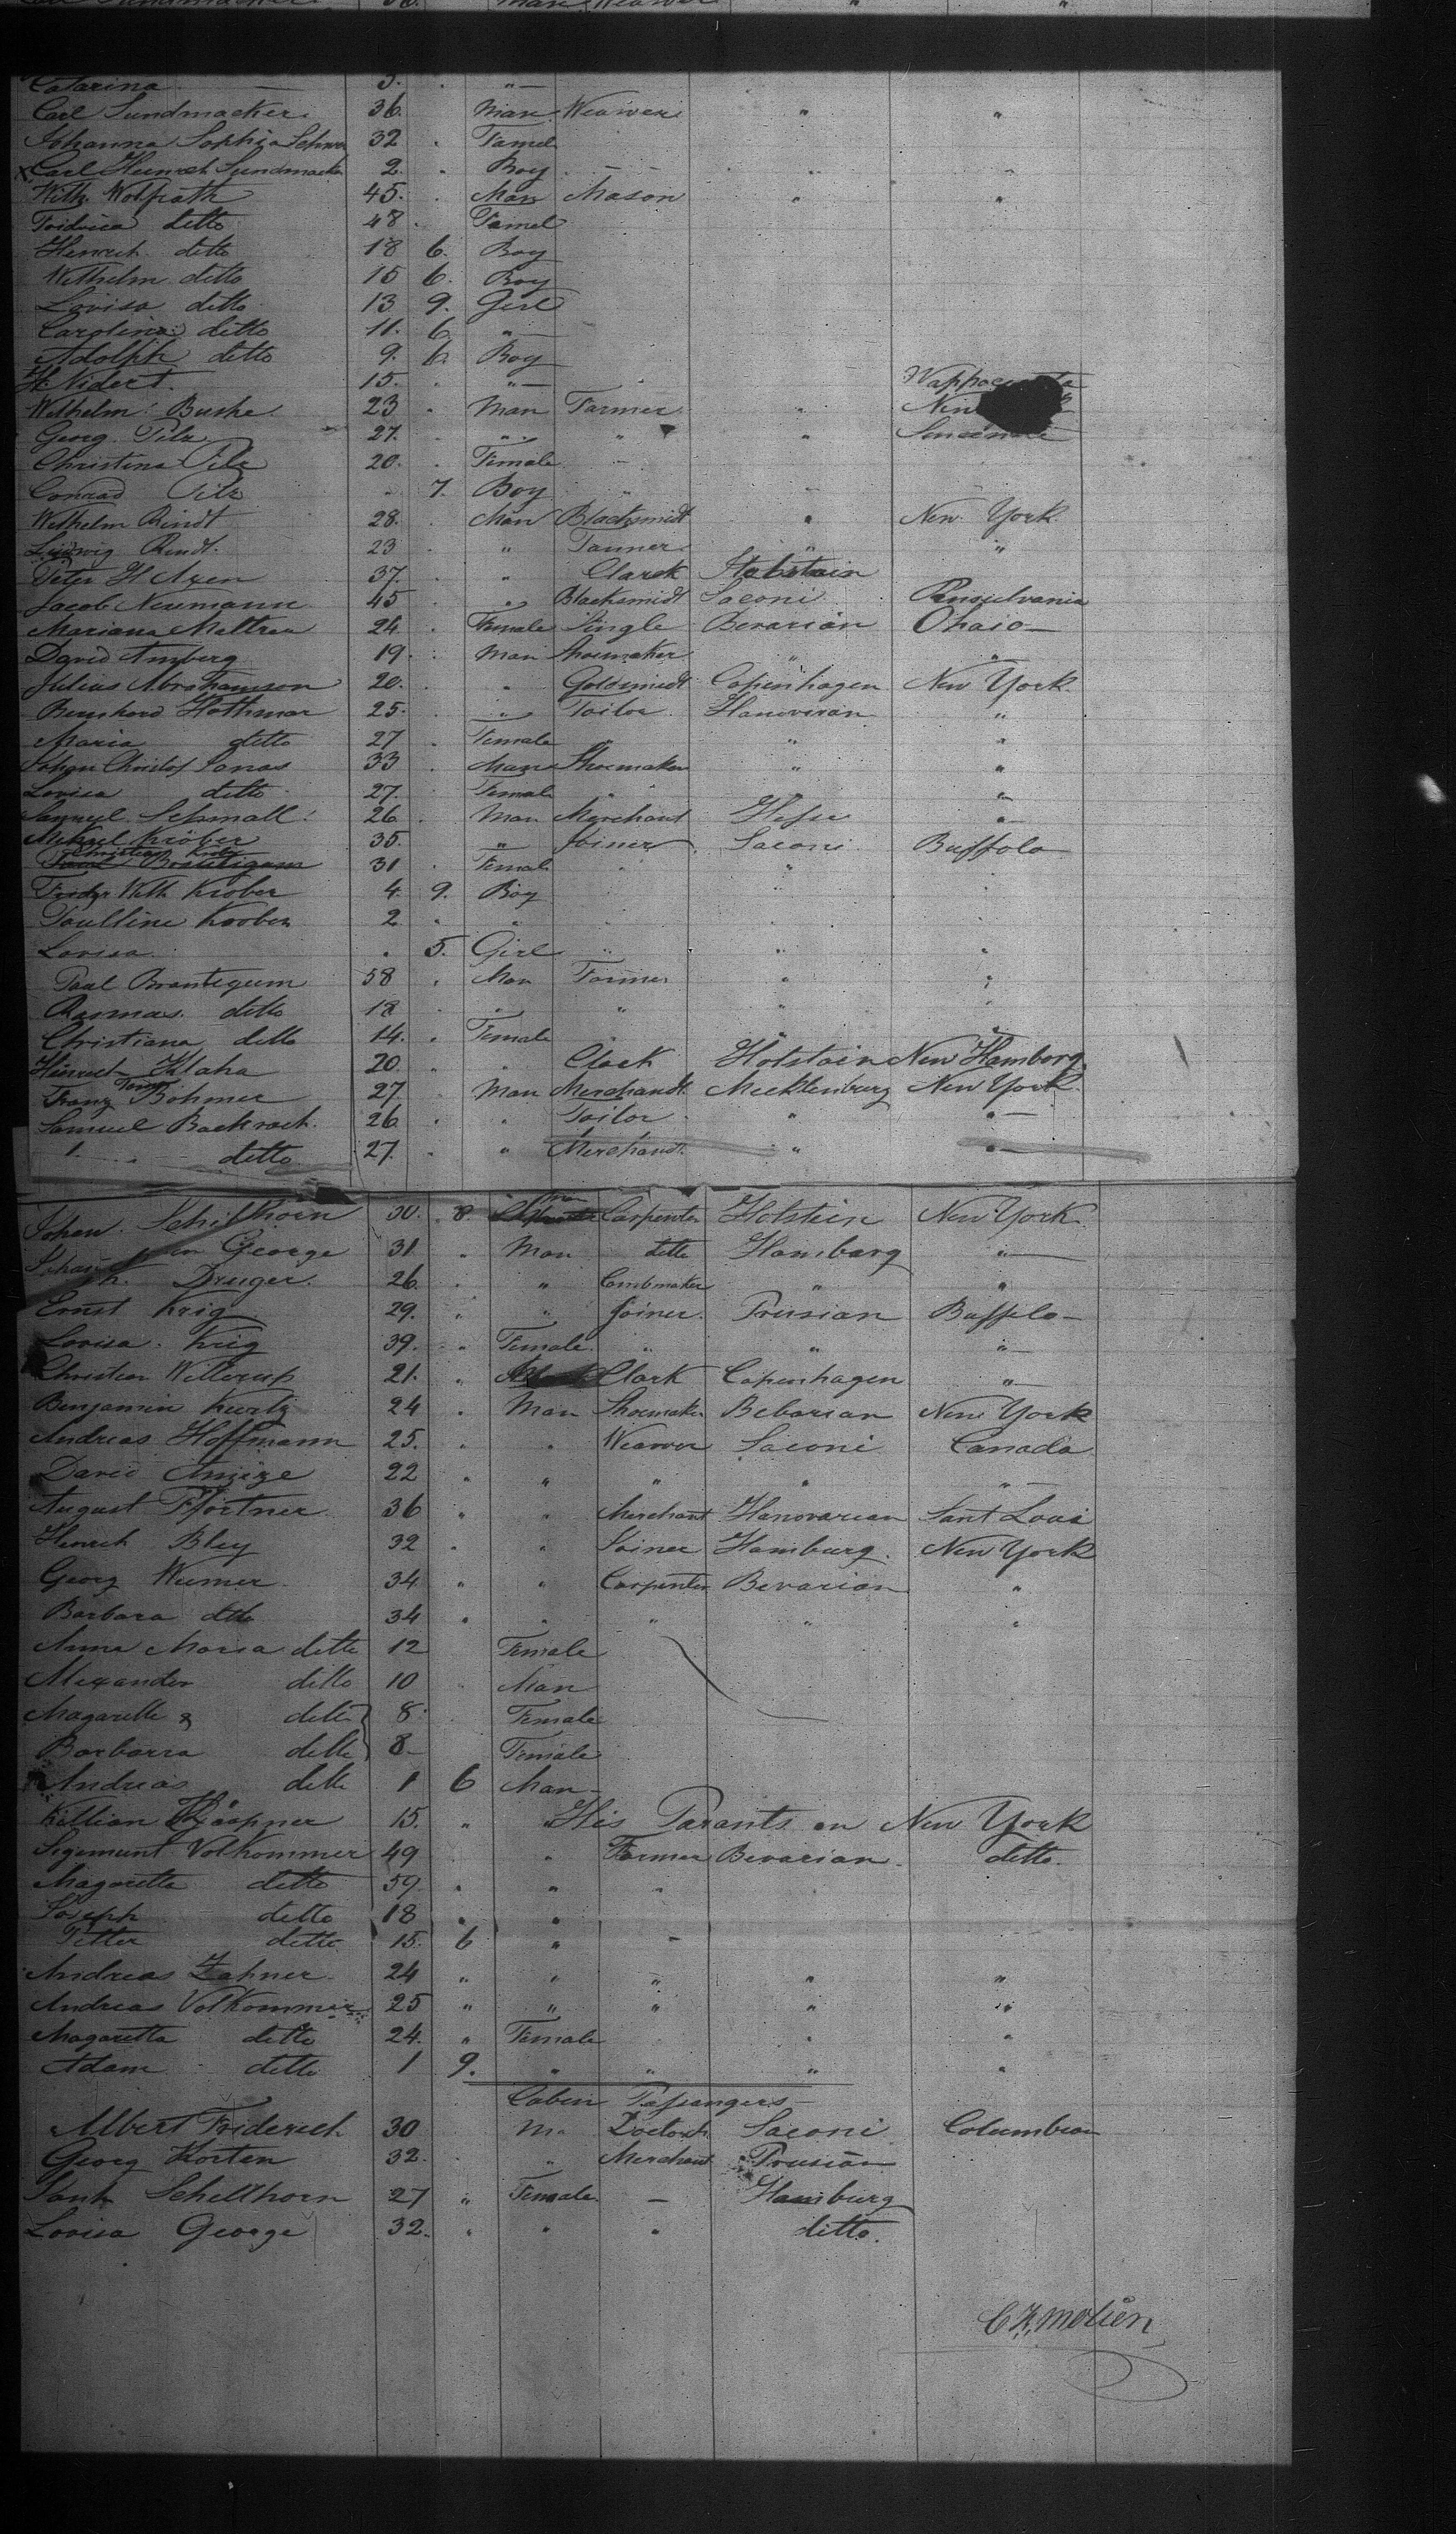 Catarina — 3. "
Carl Sundmacker 36. Man Weawer " "
Johanna Sophia 32 Famel
x Carl Heinrich Sundmacker 2. Boy
Wilh. Wolfrath 45. Man Mason " "
ditto 48 Famel
Henrich ditto 18 6. Boy
Wilhelm ditto 15 6. Boy
Lovisa ditto 13 9. Girl
Carolina ditto 11. 6 "
Adolph ditto 9. 6 Boy
H. Nidert. 15. "
Wilhelm Bushe 23 Man Farmer "
Georg Pilz 27. " " "
Christina Pilz 20. Female
Conrad Pilz 7. Boy
Wilhelm Rindt 28. Man Blacksmidt " New York
Ludwig Rindt. 23 " Tanner " "
Peter H Axen 37. " Clarck Holstain
Jacob Neumann 45 " Blacksmidt Saconi Pensulvania
Mariana Maltrea 24 Female Single Bevarian Ohaio
David Amberg 19. Man Shoemaker " "
Julius Abrahamson 20. " Goldsmidt Copenhagen New York
Bernhard Hothmar 25. " Tailor Hanoveran "
Maria ditto 27 Female " " "
Johan Christof Janas 33 Man Shoemaker " "
Lovisa ditto 27. Female " "
Samuel Schmall 26 Man Merchant Hesse "
Mikael Kröber 35. " Joiner Saconi Buffolo
31 Female "
Fridr Wilh Krober 4. 9. Boy
Paulline Krober 2 "
Lovisa 5. Girl " " "
Paul Brantegum 58 Man Farmer " "
Rasmus ditto 18 " " "
Christiana ditto 14. Female
Hinrech Klaha 20. " Clack Holstain New Hamborg
Franz Böhmer 27. Man Merchandt Mecklenburg New York
Samuel Backrach 26 " Tailor " "
" ditto 27. " Merchandt " "
Johan Schilthorn 30. 8. Man Carpenter Holstein New York
George 31 " Man ditto Hamburg "
Druger. 26. " " Combmaker " "
Ernst Krig 29. " " Joiner. Prusian Buffelo
Lovisa Krig 39. " Female " " "
Christian Willerup 21. " Clark Copenhagen "
Benjamin Kurtz 24 Man Shoemaker Bebarian New York
Andreas Hoffmann 25. " " Weawer Saconi Canada
David 22 " " " " "
August Pförtner 36 " " Merchant Hanovarian Sant Louis
Henrich Bley 32 " " Joiner Hamburg. New York
Georg Weimer 34 " " Carpenter Bevarian "
Barbara ditto 34 " " " " "
Anna Maria ditto 12 Female
Alexander ditto 10 Man
Magarette & ditto } 8 Female
Barbarra ditto } 8 Female
Andreas ditto 1 6 Man
Killian 15. " " His Parants en New York
Sigemunt Volkommer 49 " Farmer Bevarian ditto.
Magaretta ditto 59 " " "
Joseph ditto 18 " "
Petter ditto 15. 6 "
Andreas Zahner 24 " " " " "
Andreas Volkommer 25 " " " " "
Magaretta ditto 24. " Female " "
Adam ditto 1 9. " " " "
Cabin Passangers
Albert Friderich 30 M. Doctor Saconi Columbian
Georg Korten 32. " Merchant Prusian
Schellhorn 27 " Female — Hamburg
Lovisa George 32. " " " ditto.